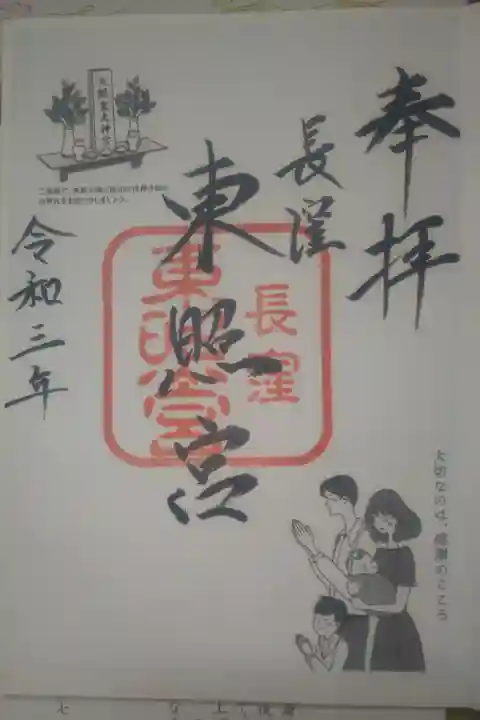 奉拝
長窪
東照宮
東照宮
長窪
令和三年
天照皇大神宮
大切なのは、感謝のこころ